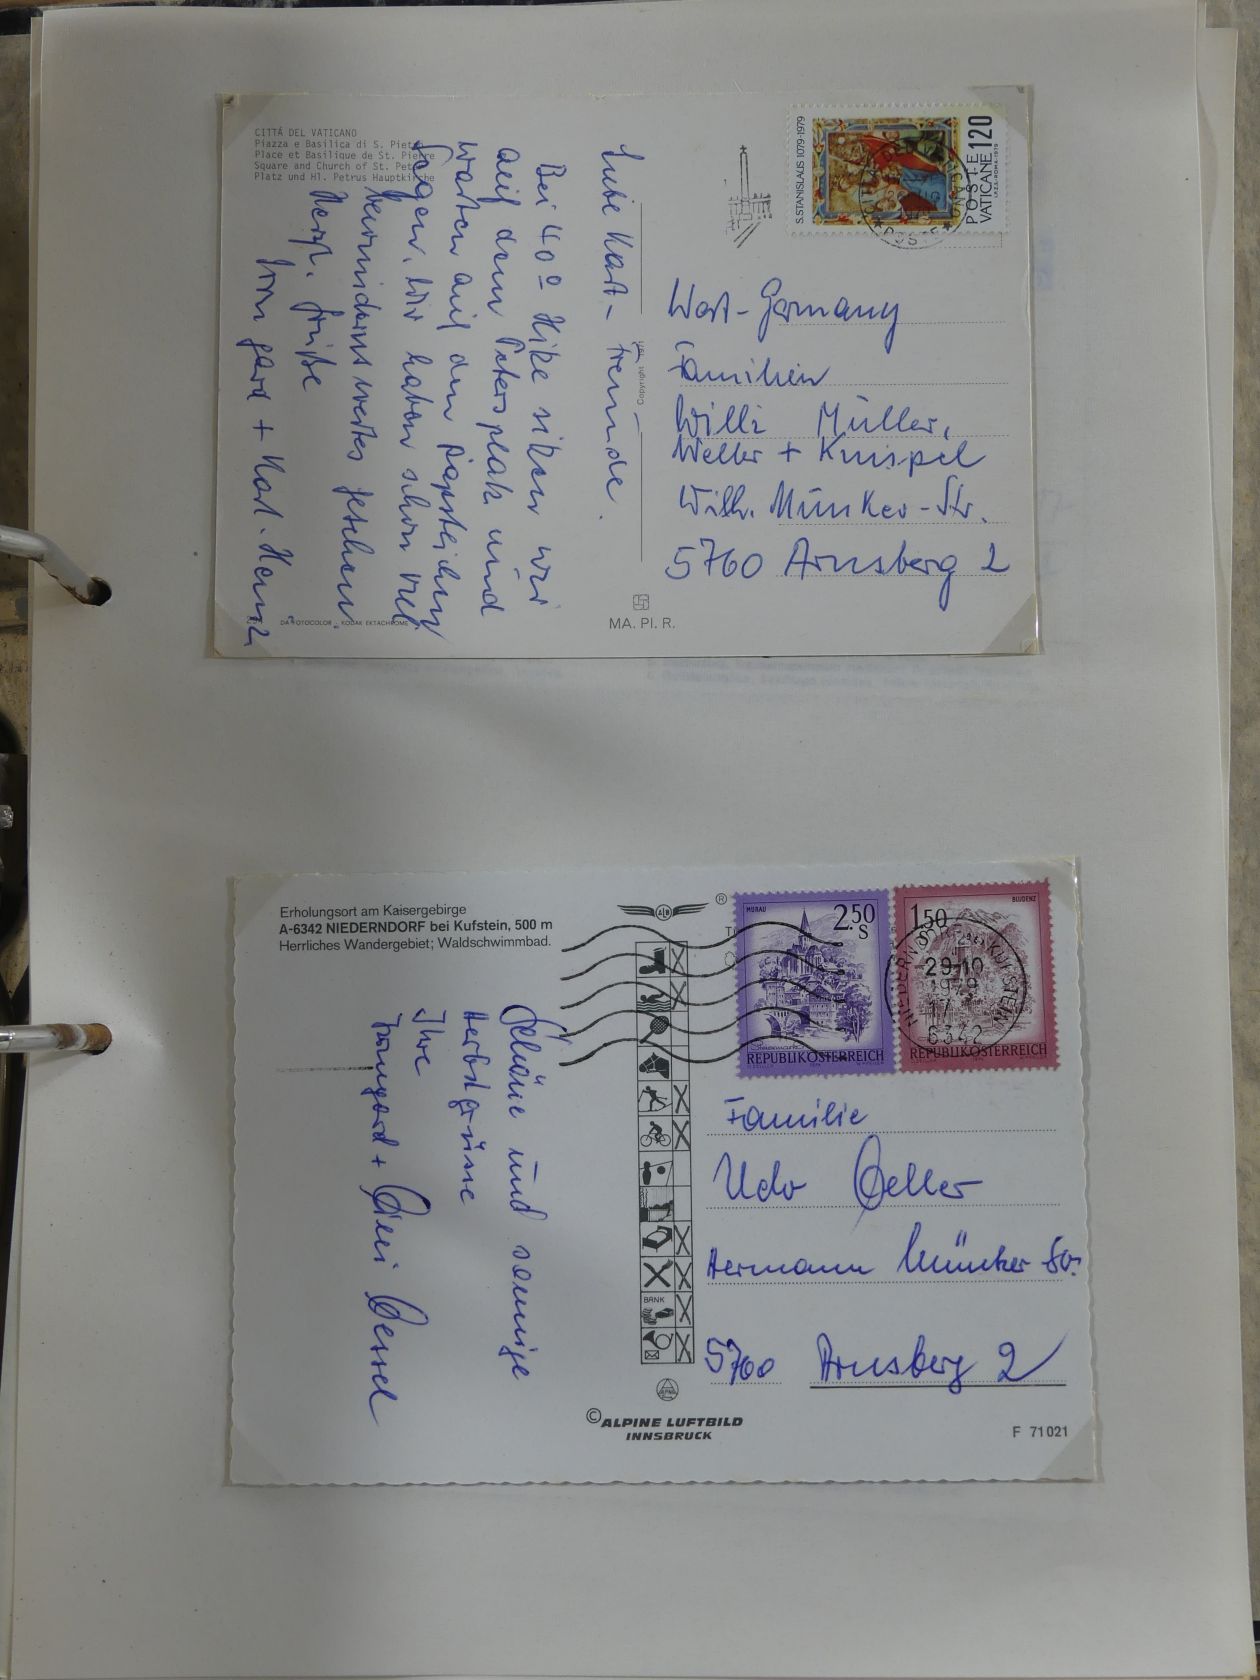 CITTÁ DEL VATICANO
Piazza e Basilica di S. Pietro
Place et Basilique de St. Pierre
Square and Church of St. Peter
Platz und Hl. Petrus Hauptkirche
S.STANISLAUS 1079-1979
POSTE VATICANE 120
I.P.Z.S.-ROMA-1979
Bei 40° Hitze sitzen wir
auf dem Petersplatz und
warten auf den
sagen. Wir haben schon viel
gesehen.
Herzl. Grüße
Irmgard + Karl-Heinz
West-Germany
Familien
Willi Müller,
Weller + Knispel
Wilh. Münker-Str.
5760 Arnsberg 2
KODAK EKTACHROME
MA. PI. R.
Erholungsort am Kaisergebirge
A-6342 NIEDERNDORF bei Kufstein, 500 m
Herrliches Wandergebiet; Waldschwimmbad.
®
MURAU
2.50 S
REPUBLIK ÖSTERREICH
1.50
BLUDENZ
REPUBLIK ÖSTERREICH
NIEDERNDORF BEI KUFSTEIN
29.10
1979
17
6342
Schöne und sonnige
Herbstgrüsse
Ihre
Irmgard +
BANK
Familie
Udo
Hermann Münker Str.
5760 Arnsberg 2
© ALPINE LUFTBILD
INNSBRUCK
F 71021